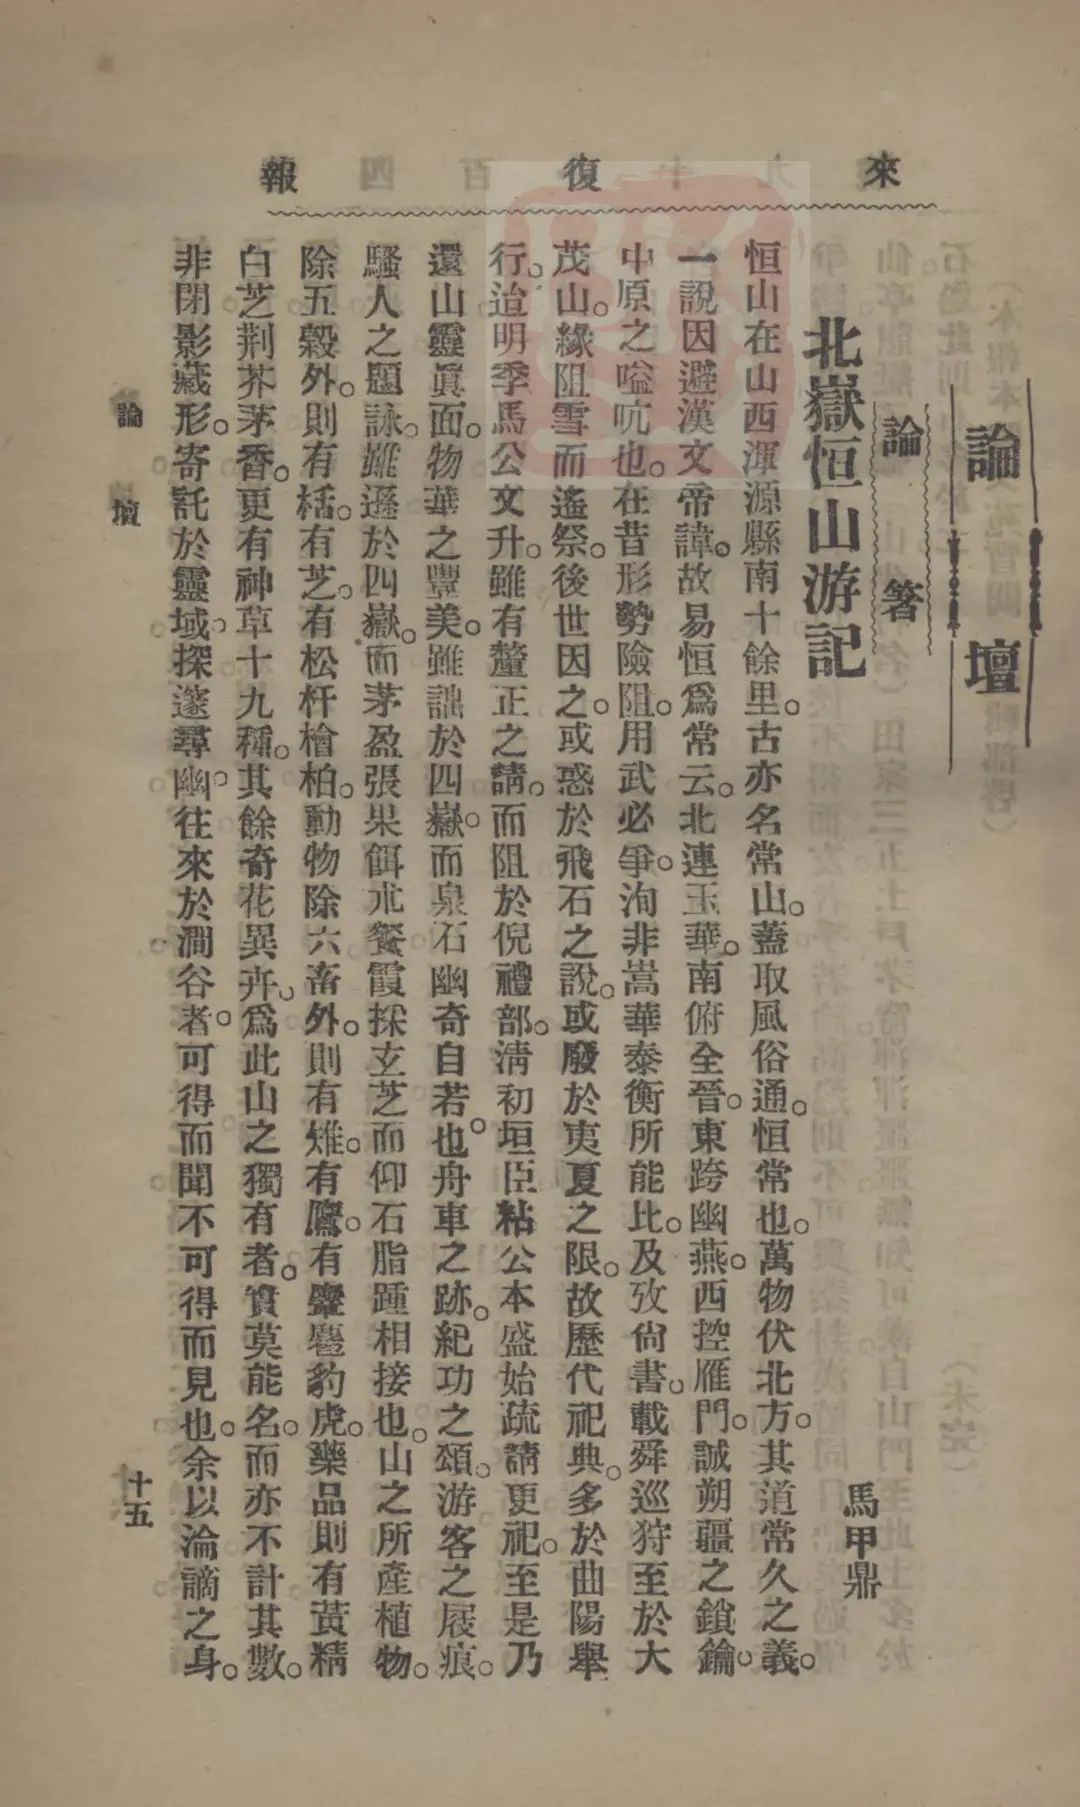 來復報
論壇
論著
北嶽恒山游記
馬甲鼎
恒山在山西渾源縣南十餘里。古亦名常山。蓋取風俗通。恒常也。萬物伏北方。其道常久之義。
一說因避漢文帝諱。故易恒爲常云。北連玉華。南俯全晉。東跨幽燕。西控雁門。誠朔疆之鎖鑰。
中原之嗌吭也。在昔形勢險阻。用武必爭。洵非嵩華泰衡所能比。及攷尙書。載舜巡狩至於大
茂山。緣阻雪而遙祭。後世因之。或惑於飛石之說。或廢於夷夏之限。故歷代祀典。多於曲陽舉
行。迨明季馬公文升。雖有釐正之請。而阻於倪禮部。淸初垣臣粘公本盛始疏請更祀。至是乃
還山靈眞面。物華之豐美。雖詘於四嶽。而泉石幽奇自若也。舟車之跡。紀功之頌。游客之屐痕。
騷人之題詠。雖遜於四嶽。而茅盈張果餌朮餐霞採玄芝而仰石脂踵相接也。山之所產植物。
除五穀外。則有栝。有芝。有松杆檜柏。動物除六畜外。則有雉。有鷹。有麝麢豹虎。藥品則有黃精
白芝荆芥茅香。更有神草十九種。其餘奇花異卉。爲此山之獨有者。實莫能名。而亦不計其數。
非閉影藏形。寄託於靈域。探邃尋幽。往來於澗谷者。可得而聞不可得而見也。余以淪謫之身。
論壇
十五